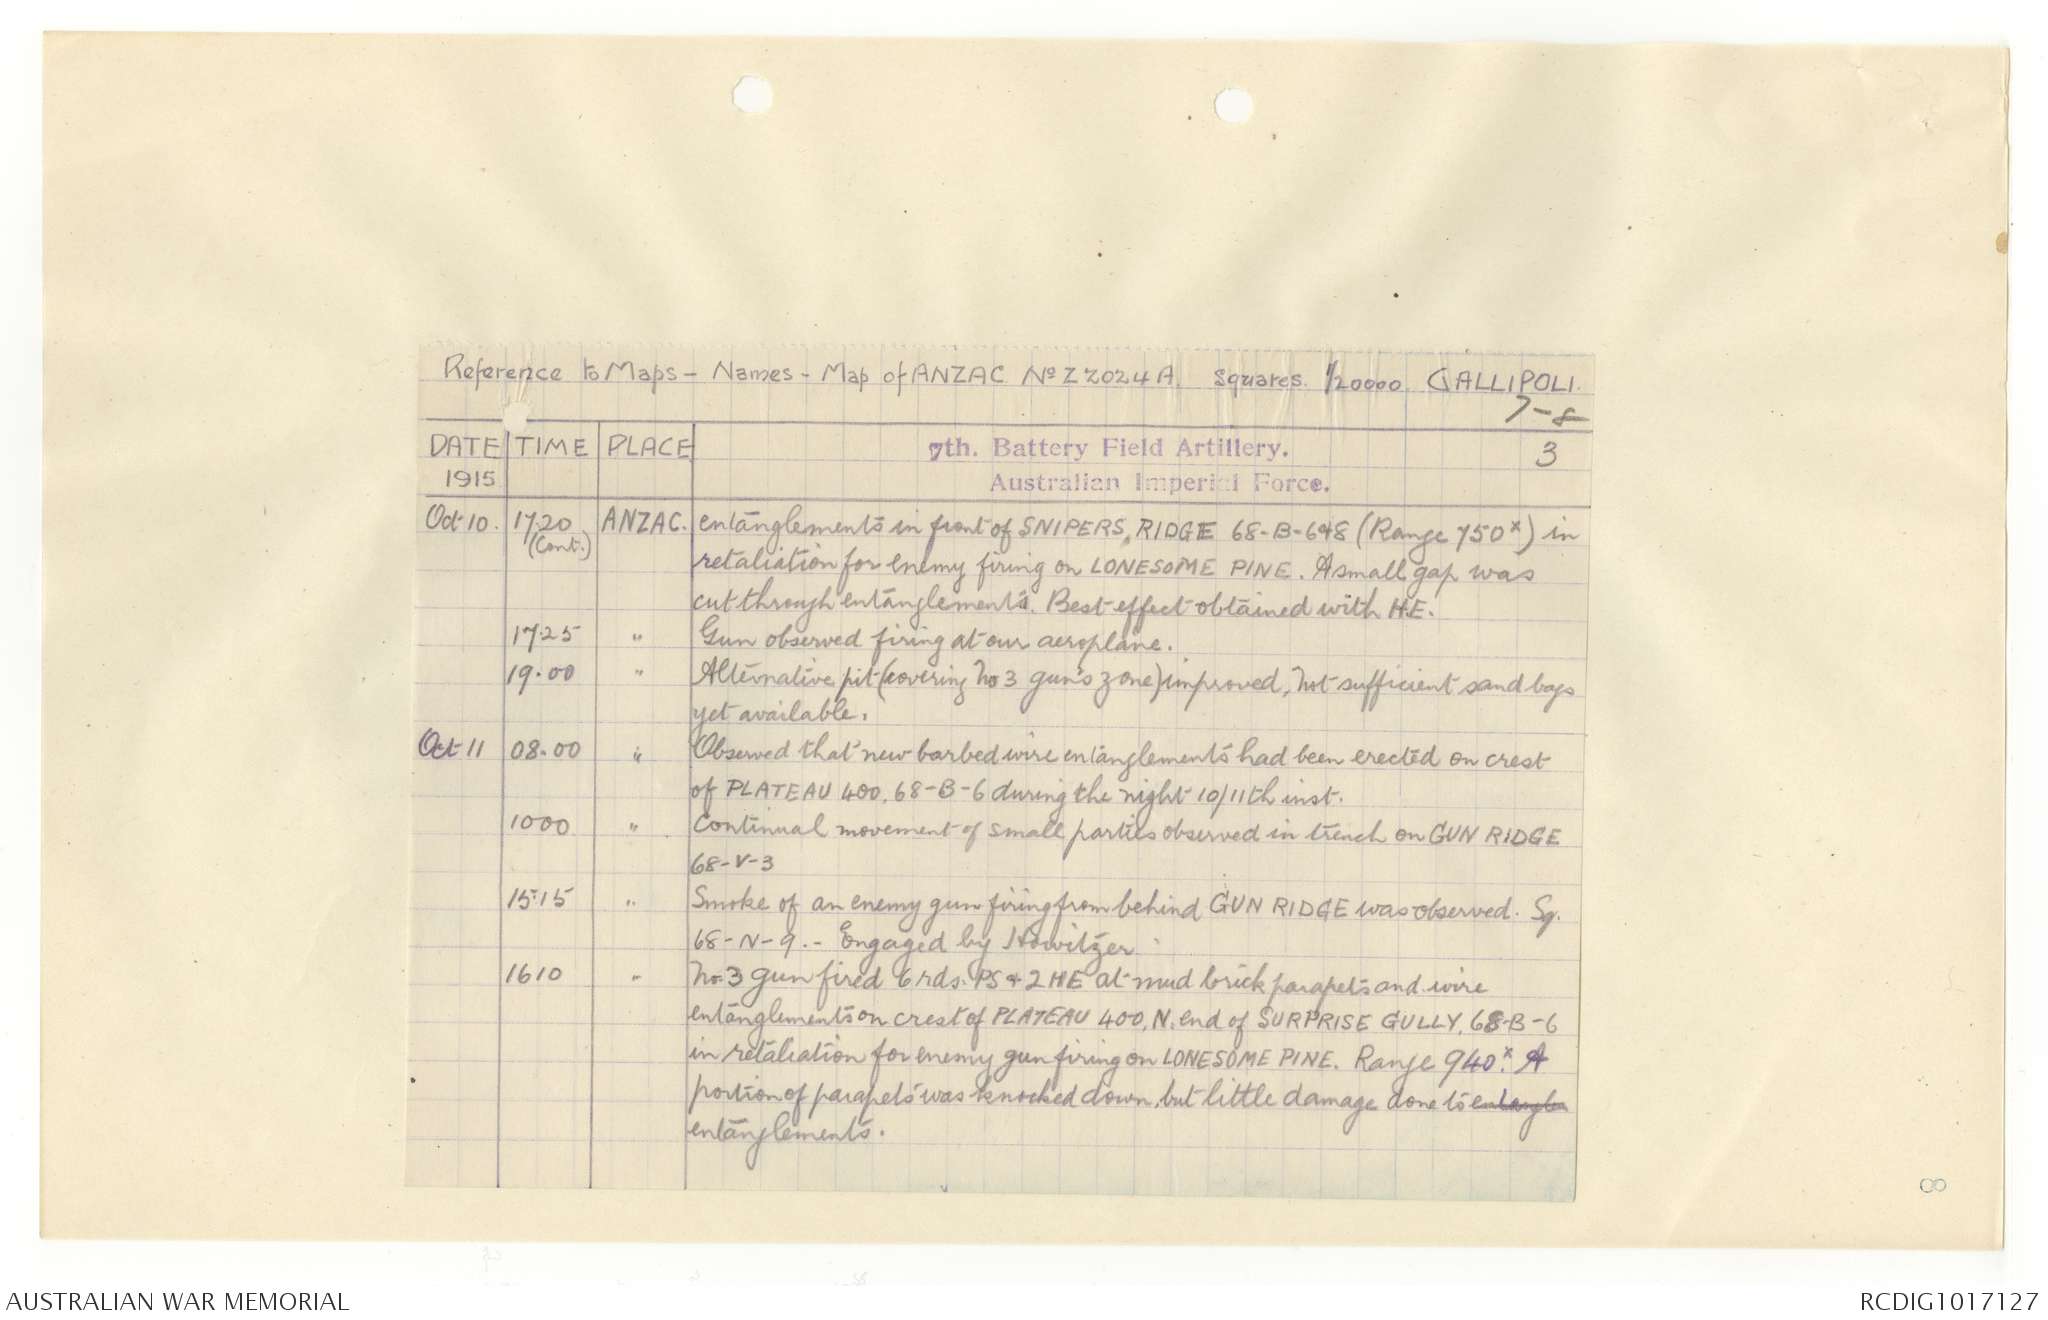 Reference to Maps - Names - Map of ANZAC No ZZ024A. Squares. 1/20000 GALLIPOLI.
7-8
DATE TIME PLACE 7th. Battery Field Artillery. 3
1915 Australian Imperial Force.
Oct 10. 17.20 ANZAC. entanglements in front of SNIPERS, RIDGE 68-B-6&8 (Range 750x) in
(Cont.) retaliation for enemy firing on LONESOME PINE. A small gap was
cut through entanglements. Best effect obtained with H.E.
17.25 " Gun observed firing at our aeroplane.
19.00 " Alternative pit (covering No 3 gun's zone) improved, not sufficient sand bags
yet available.
Oct 11 08.00 " Observed that new barbed wire entanglements had been erected on crest
of PLATEAU 400, 68-B-6 during the night 10/11th inst.
1000 " Continual movement of small parties observed in trench on GUN RIDGE
68-V-3
15.15 " Smoke of an enemy gun firing from behind GUN RIDGE was observed. Sq.
68-N-9. - Engaged by Howitzer
1610 " No. 3 gun fired 6 rds. PS & 2 HE at mud brick parapets and wire
entanglements on crest of PLATEAU 400, N. end of SURPRISE GULLY, 68-B-6
in retaliation for enemy gun firing on LONESOME PINE. Range 940x. A
portion of parapets was knocked down, but little damage done to entanglem
entanglements.
8
AUSTRALIAN WAR MEMORIAL RCDIG1017127